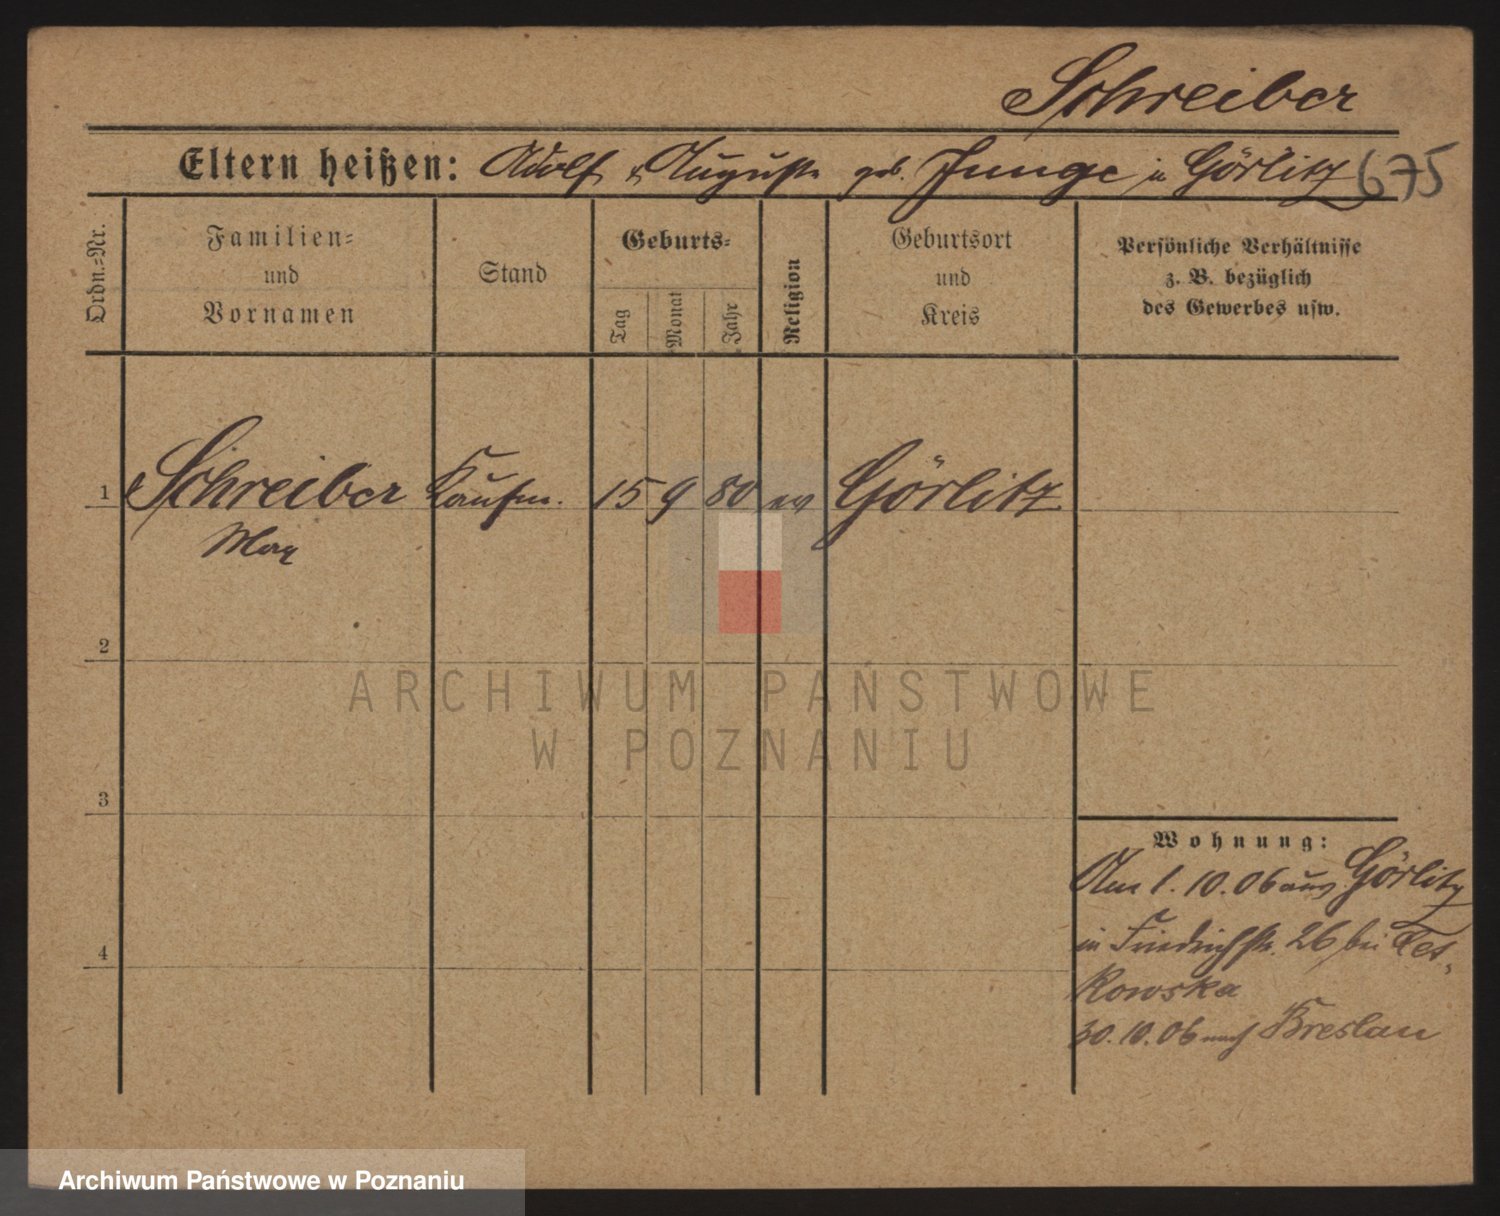 Schreiber
Eltern heißen: Adolf & Auguste geb. Junge in Görlitz 675
Ordn.-Nr.
Familien-
und
Vornamen
Stand
Geburts-
Tag
Monat
Jahr
Religion
Geburtsort
und
Kreis
Persönliche Verhältnisse
z. B. bezüglich
des Gewerbes usw.
1 Schreiber Kaufm. 15 9 80 ev Görlitz
Max
2
ARCHIWUM PAŃSTWOWE
W POZNANIU
3
Wohnung:
Am 1.10.06 aus Görlitz
in Friedrichstr. 26 bei
4
kowska
30.10.06 nach Breslau
Archiwum Państwowe w Poznaniu